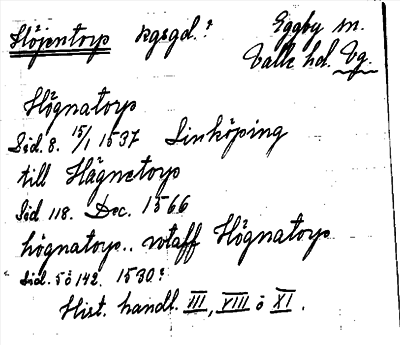 Höjentorp kgsgd.? Eggby sn.
Valle hd. Vg.
Högnatorp
Sid. 8. 15/1 1537 Linköping
till Hägnetorp
Sid 118. Dec. 1566
högnatorp.. utaff Högnatorp
Sid. 5 ò 142. 1530?
Hist. handl. III, VIII ò XI.